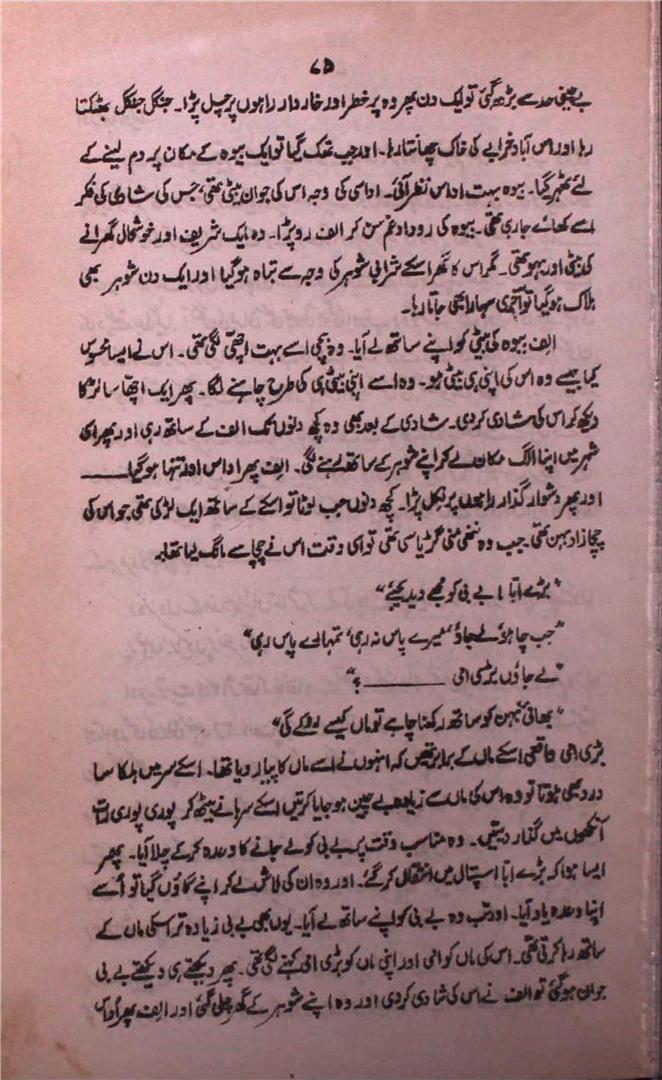 ۷۵
بے چینی حد سے بڑھ گئی تو ایک دن پھر وہ پر خطر اور خاردار راہوں پر چل پڑا۔ جنگل جنگل بھٹکتا
رہا اور اس آباد خرابے کی خاک چھانتا رہا۔ اور جب تھک گیا تو ایک بیوہ کے مکان پر دم لینے کے
لئے ٹھہر گیا۔ بیوہ بہت اداس نظر آئی۔ اداسی کی وجہ اس کی جوان بیٹی تھی، جس کی شادی کی فکر
اسے کھائے جا رہی تھی۔ بیوہ کی روداد غم سن کر الف رو پڑا۔ وہ ایک شریف اور خوشحال گھرانے
کی بیٹی اور بہو تھی۔ مگر اس کا گھر اسکے شرابی شوہر کی وجہ سے تباہ ہو گیا اور ایک دن شوہر بھی
ہلاک ہو گیا تو آخری سہارا بھی جاتا رہا۔
الف بیوہ کی بیٹی کو اپنے ساتھ لے آیا۔ وہ بچی اسے بہت اچھی لگی تھی۔ اس نے ایسا محسوس
کیا جیسے وہ اس کی اپنی ہی بیٹی ہو۔ وہ اسے اپنی بیٹی ہی کی طرح چاہنے لگا۔ پھر ایک اچھا سا لڑکا
دیکھ کر اس کی شادی کر دی۔ شادی کے بعد بھی وہ کچھ دنوں تک الف کے ساتھ رہی اور پھر اسی
شہر میں اپنا الگ مکان لے کر اپنے شوہر کے ساتھ رہنے لگی۔ الف پھر اداس اور تنہا ہو گیا ــــــ
اور پھر دشوار گذار راہوں پر نکل پڑا۔ کچھ دنوں جب لوٹا تو اسکے ساتھ ایک لڑکی تھی جو اس کی
چچازاد بہن تھی۔ جب وہ ننھی منی گڑیا سی تھی تو اسی وقت اس نے چچا سے مانگ لیا تھا۔
"بڑے ابا! بے بی کو مجھے دیدیجئے"
"جب چاہو لے جاؤ، میرے پاس نہ رہی، تمہارے پاس رہی"
"لے جاؤں بڑی امی ــــــــــــ؟"
"بھائی بہن کو ساتھ رکھنا چاہے تو ماں کیسے روکے گی"
بڑی امی واقعی اسکے ماں کے برابر تھیں کہ انہوں نے اسے ماں کا پیار دیا تھا۔ اسکے سر میں ہلکا سا
درد بھی ہوتا تو وہ اس کی ماں سے زیادہ بے چین ہو جایا کرتیں اسکے سرہانے بیٹھ کر پوری پوری رات
آنکھوں میں گذار دیتیں۔ وہ مناسب وقت پر بے بی کو لے جانے کا وعدہ کر کے چلا آیا۔ پھر
ایسا ہوا کہ بڑے ابا اسپتال میں انتقال کر گئے۔ اور وہ ان کی لاش لے کر اپنے گاؤں گیا تو اسے
اپنا وعدہ یاد آیا۔ اور تب وہ بے بی کو اپنے ساتھ لے آیا۔ یوں بھی بے بی زیادہ تر اسکی ماں کے
ساتھ رہا کرتی تھی۔ اس کی ماں کو امی اور اپنی ماں کو بڑی امی کہنے لگی تھی۔ پھر دیکھتے ہی دیکھتے بے بی
جوان ہو گئی تو الف نے اس کی شادی کر دی اور وہ اپنے شوہر کے گھر چلی گئی اور الف پھر اداس